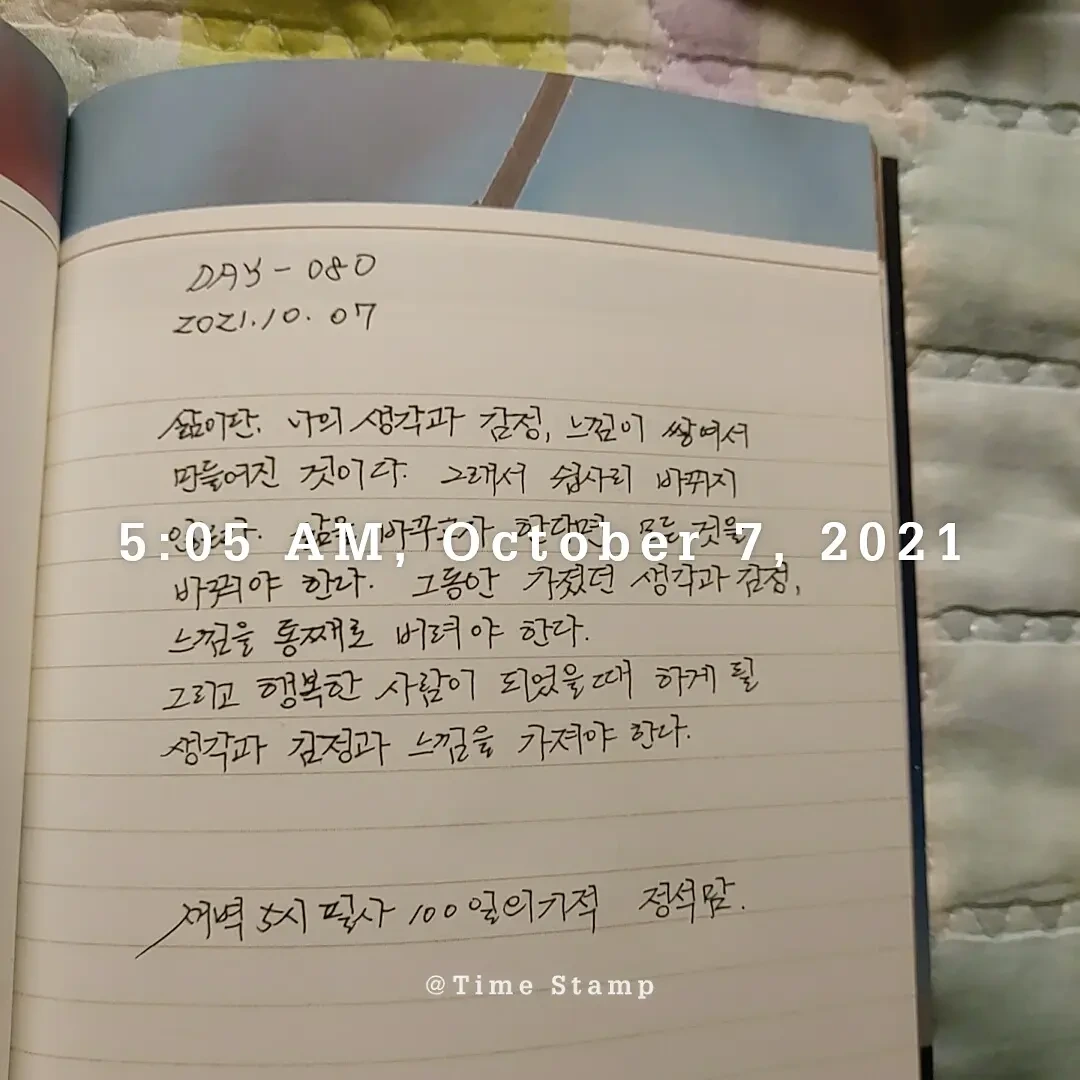 DAY - 080
2021.10.07
삶이란. 나의 생각과 감정, 느낌이 쌓여서
만들어진 것이다. 그래서 쉽사리 바뀌지
않는다. 삶을 바꾸고자 한다면 모든 것을
5:05 AM, October 7, 2021
바꿔야 한다. 그동안 가졌던 생각과 감정,
느낌을 통째로 버려야 한다.
그리고 행복한 사람이 되었을때 하게 될
생각과 감정과 느낌을 가져야 한다.
새벽 5시 필사 100일의기적 정석맘.
@Time Stamp